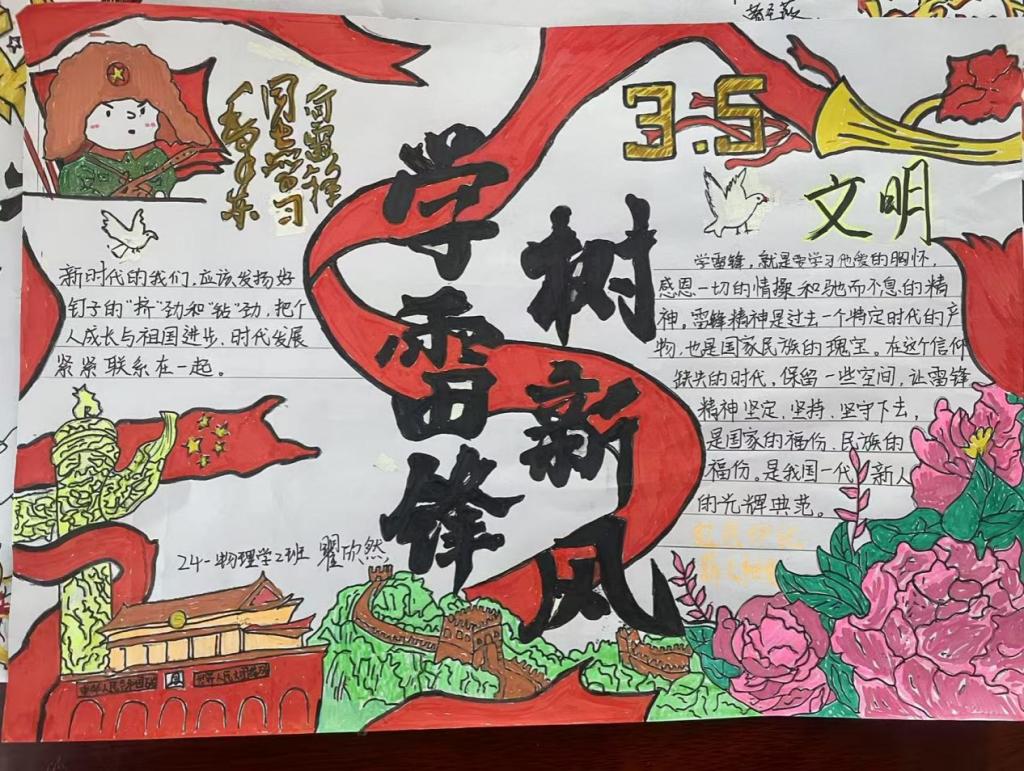 向雷锋
同志学习
毛泽东
3.5
学雷锋
树新风
文明
新时代的我们，应该发扬好
钉子的“挤”劲和“钻”劲，把个
人成长与祖国进步、时代发展
紧紧联系在一起。
学雷锋，就是要学习他爱的胸怀，
感恩一切的情操和驰而不息的精
神。雷锋精神是过去一个特定时代的产
物，也是国家民族的瑰宝。在这个信仰
缺失的时代，保留一些空间，让雷锋
精神坚定、坚持、坚守下去，
是国家的福份、民族的
福份。是我国一代新人
的光辉典范。
24-物理学2班 瞿欣然